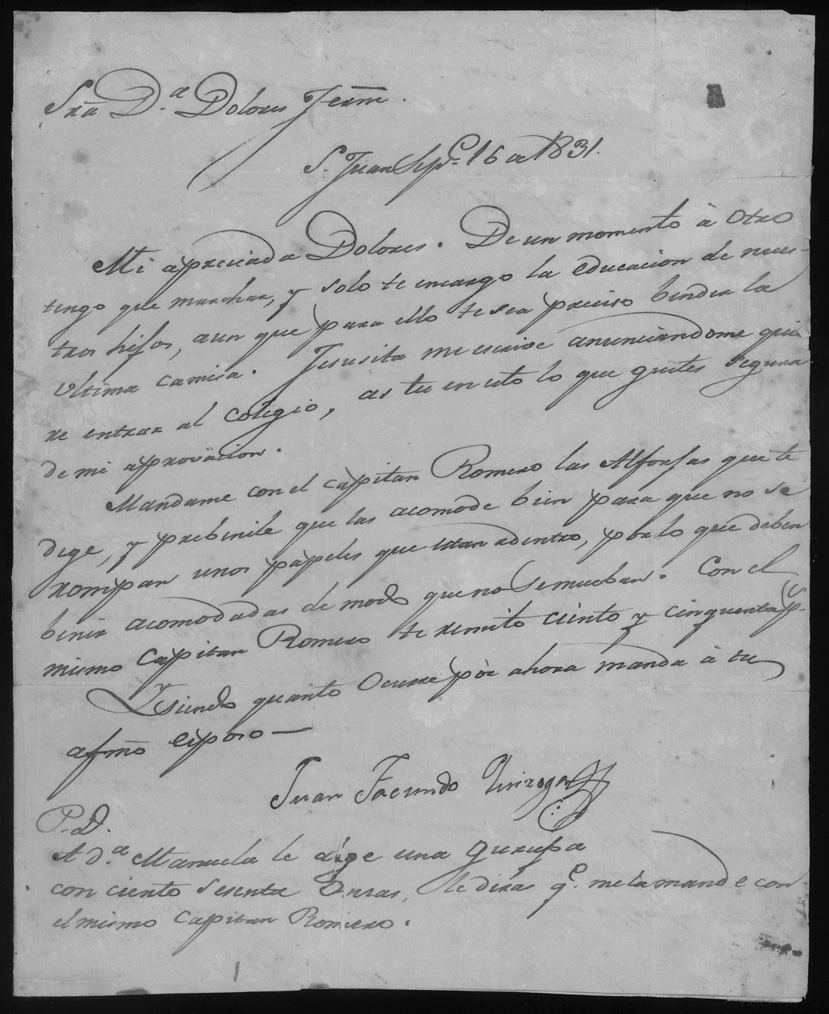 Sra D.a Dolores Fern.
S. Juan Sepe. 16 de 1831.
Mi apreciada Dolores. De un momento à otro
tengo que marchar, y solo te encargo la educacion de nues-
tros hijos, aun que para ello te sea preciso binder la
ultima camisa. Jesusita me escrive anunciandome quie
re entrar al colegio, as tu en esto lo que gustes segura
de mi aprovacion.
Mandame con el capitan Romero las Alforjas que te
dige, y prebinile que las acomode bien para que no se
rompan unos papeles que estan adentro, por lo que deben
benir acomodadas de modo que no se mueban. Con el
mismo Capitan Romero te remito ciento y cinquenta p.
Y siendo quanto ocurre pòr ahora manda à tu
afmo esposo —
Juan Facundo Quiroga
P.D.
A d.a Manuela le dige una gurupa
con ciento sesenta Onzas, le diras q.e me la mande con
el mismo Capitan Romero.
1